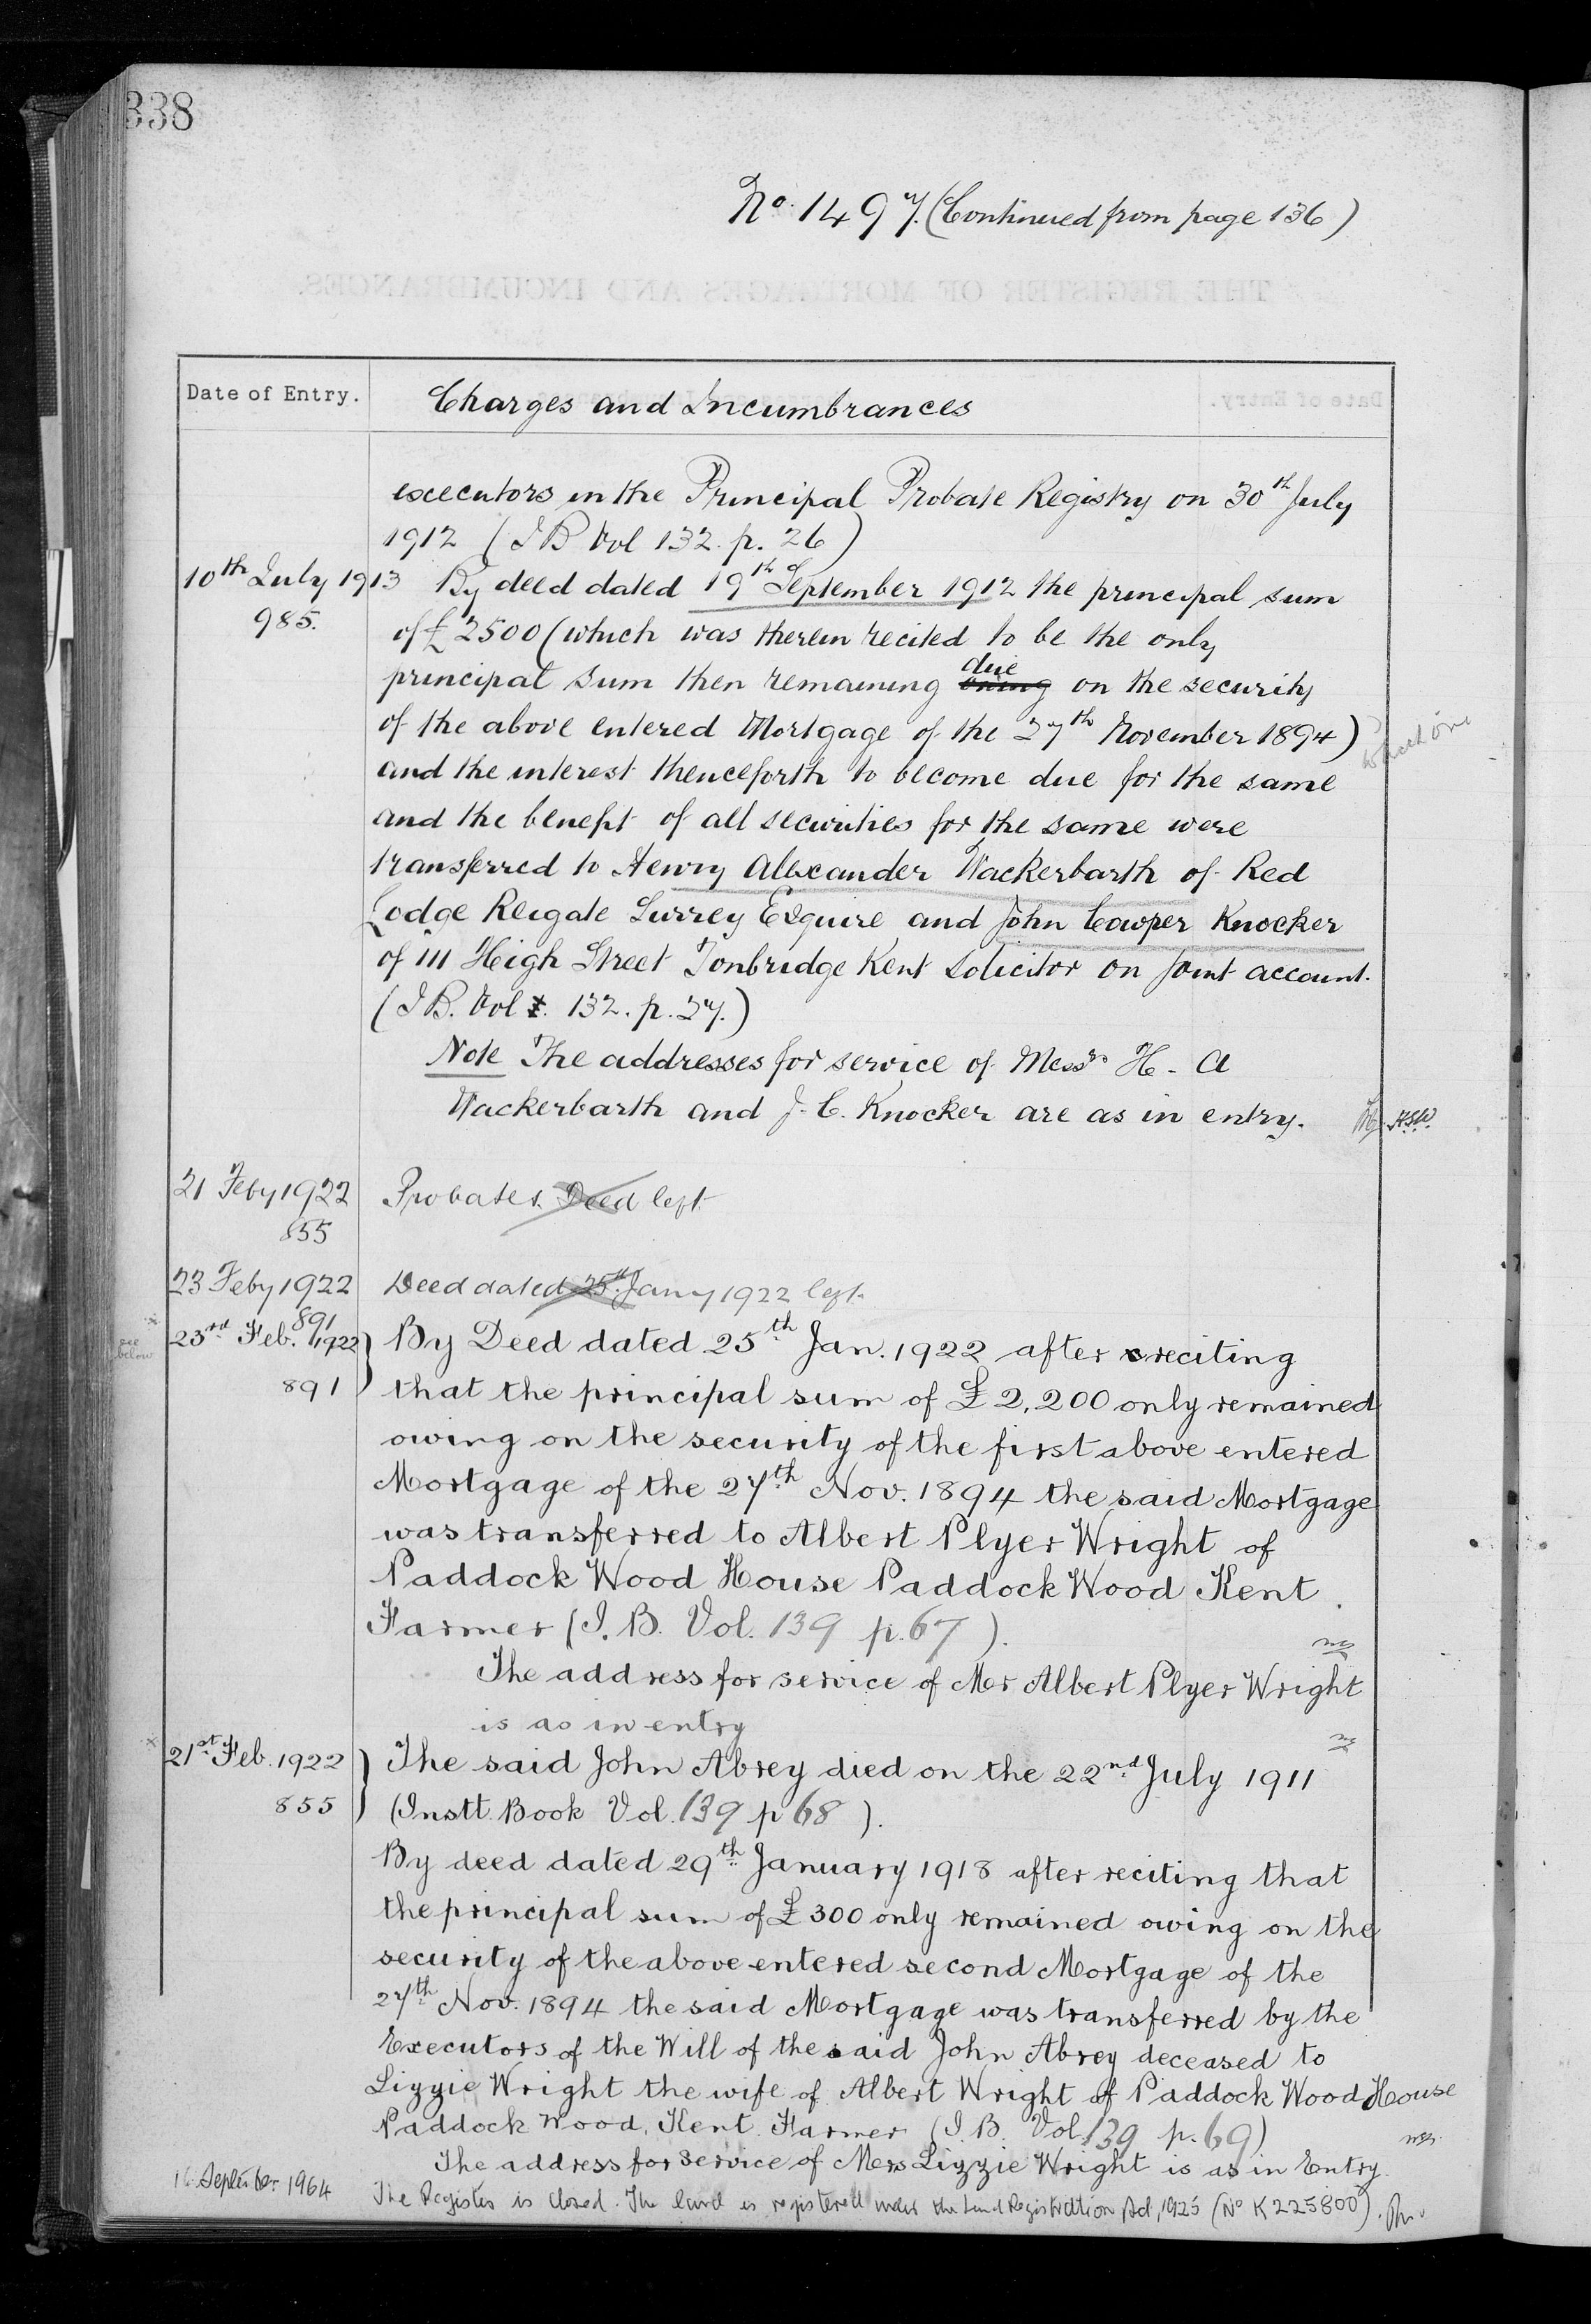 338
No. 1497. (Continued from page 136)
Date of Entry.
Charges and Incumbrances
executors in the Principal Probate Registry on 30th July
1912 (I B Vol 132. p. 26)
10th July 1913 By deed dated 19th September 1912 the principal sum
985. of £2500 (which was therein recited to be the only
principal sum then remaining owing due on the security
of the above entered Mortgage of the 27th November 1894)
which one
and the interest thenceforth to become due for the same
and the benefit of all securities for the same were
transferred to Henry Alexander Wackerbarth of Red
Lodge Reigate Surrey Esquire and John Cowper Knocker
of 111 High Street Tonbridge Kent Solicitor on joint account.
(I B. Vol. 132. p. 27.)
Note The addresses for service of Messrs H. A
Wackerbarth and J. C. Knocker are as in entry.
21 Feby 1922 Probates. Deed left
855
23 Feby 1922 Deed dated 25th Jany 1922 left
891
see below
23rd Feb. 1922 By Deed dated 25th Jan. 1922 after reciting
891 that the principal sum of £2,200 only remained
owing on the security of the first above entered
Mortgage of the 27th Nov. 1894 the said Mortgage
was transferred to Albert Plyer Wright of
Paddock Wood House Paddock Wood Kent.
Farmer (I. B. Vol. 139 p. 67).
The address for service of Mr Albert Plyer Wright
is as in entry
21st Feb. 1922 The said John Abrey died on the 22nd July 1911
855 (Instt. Book Vol. 139 p 68).
By deed dated 29th January 1918 after reciting that
the principal sum of £300 only remained owing on the
security of the above entered second Mortgage of the
27th Nov. 1894 the said Mortgage was transferred by the
Executors of the Will of the said John Abrey deceased to
Lizzie Wright the wife of Albert Wright of Paddock Wood House
Paddock Wood, Kent. Farmer (I. B. Vol. 139 p. 69)
The address for service of Mrs Lizzie Wright is as in Entry.
September 1964 The Register is closed. The land is registered under the Land Registration Act, 1925 (No K225800).